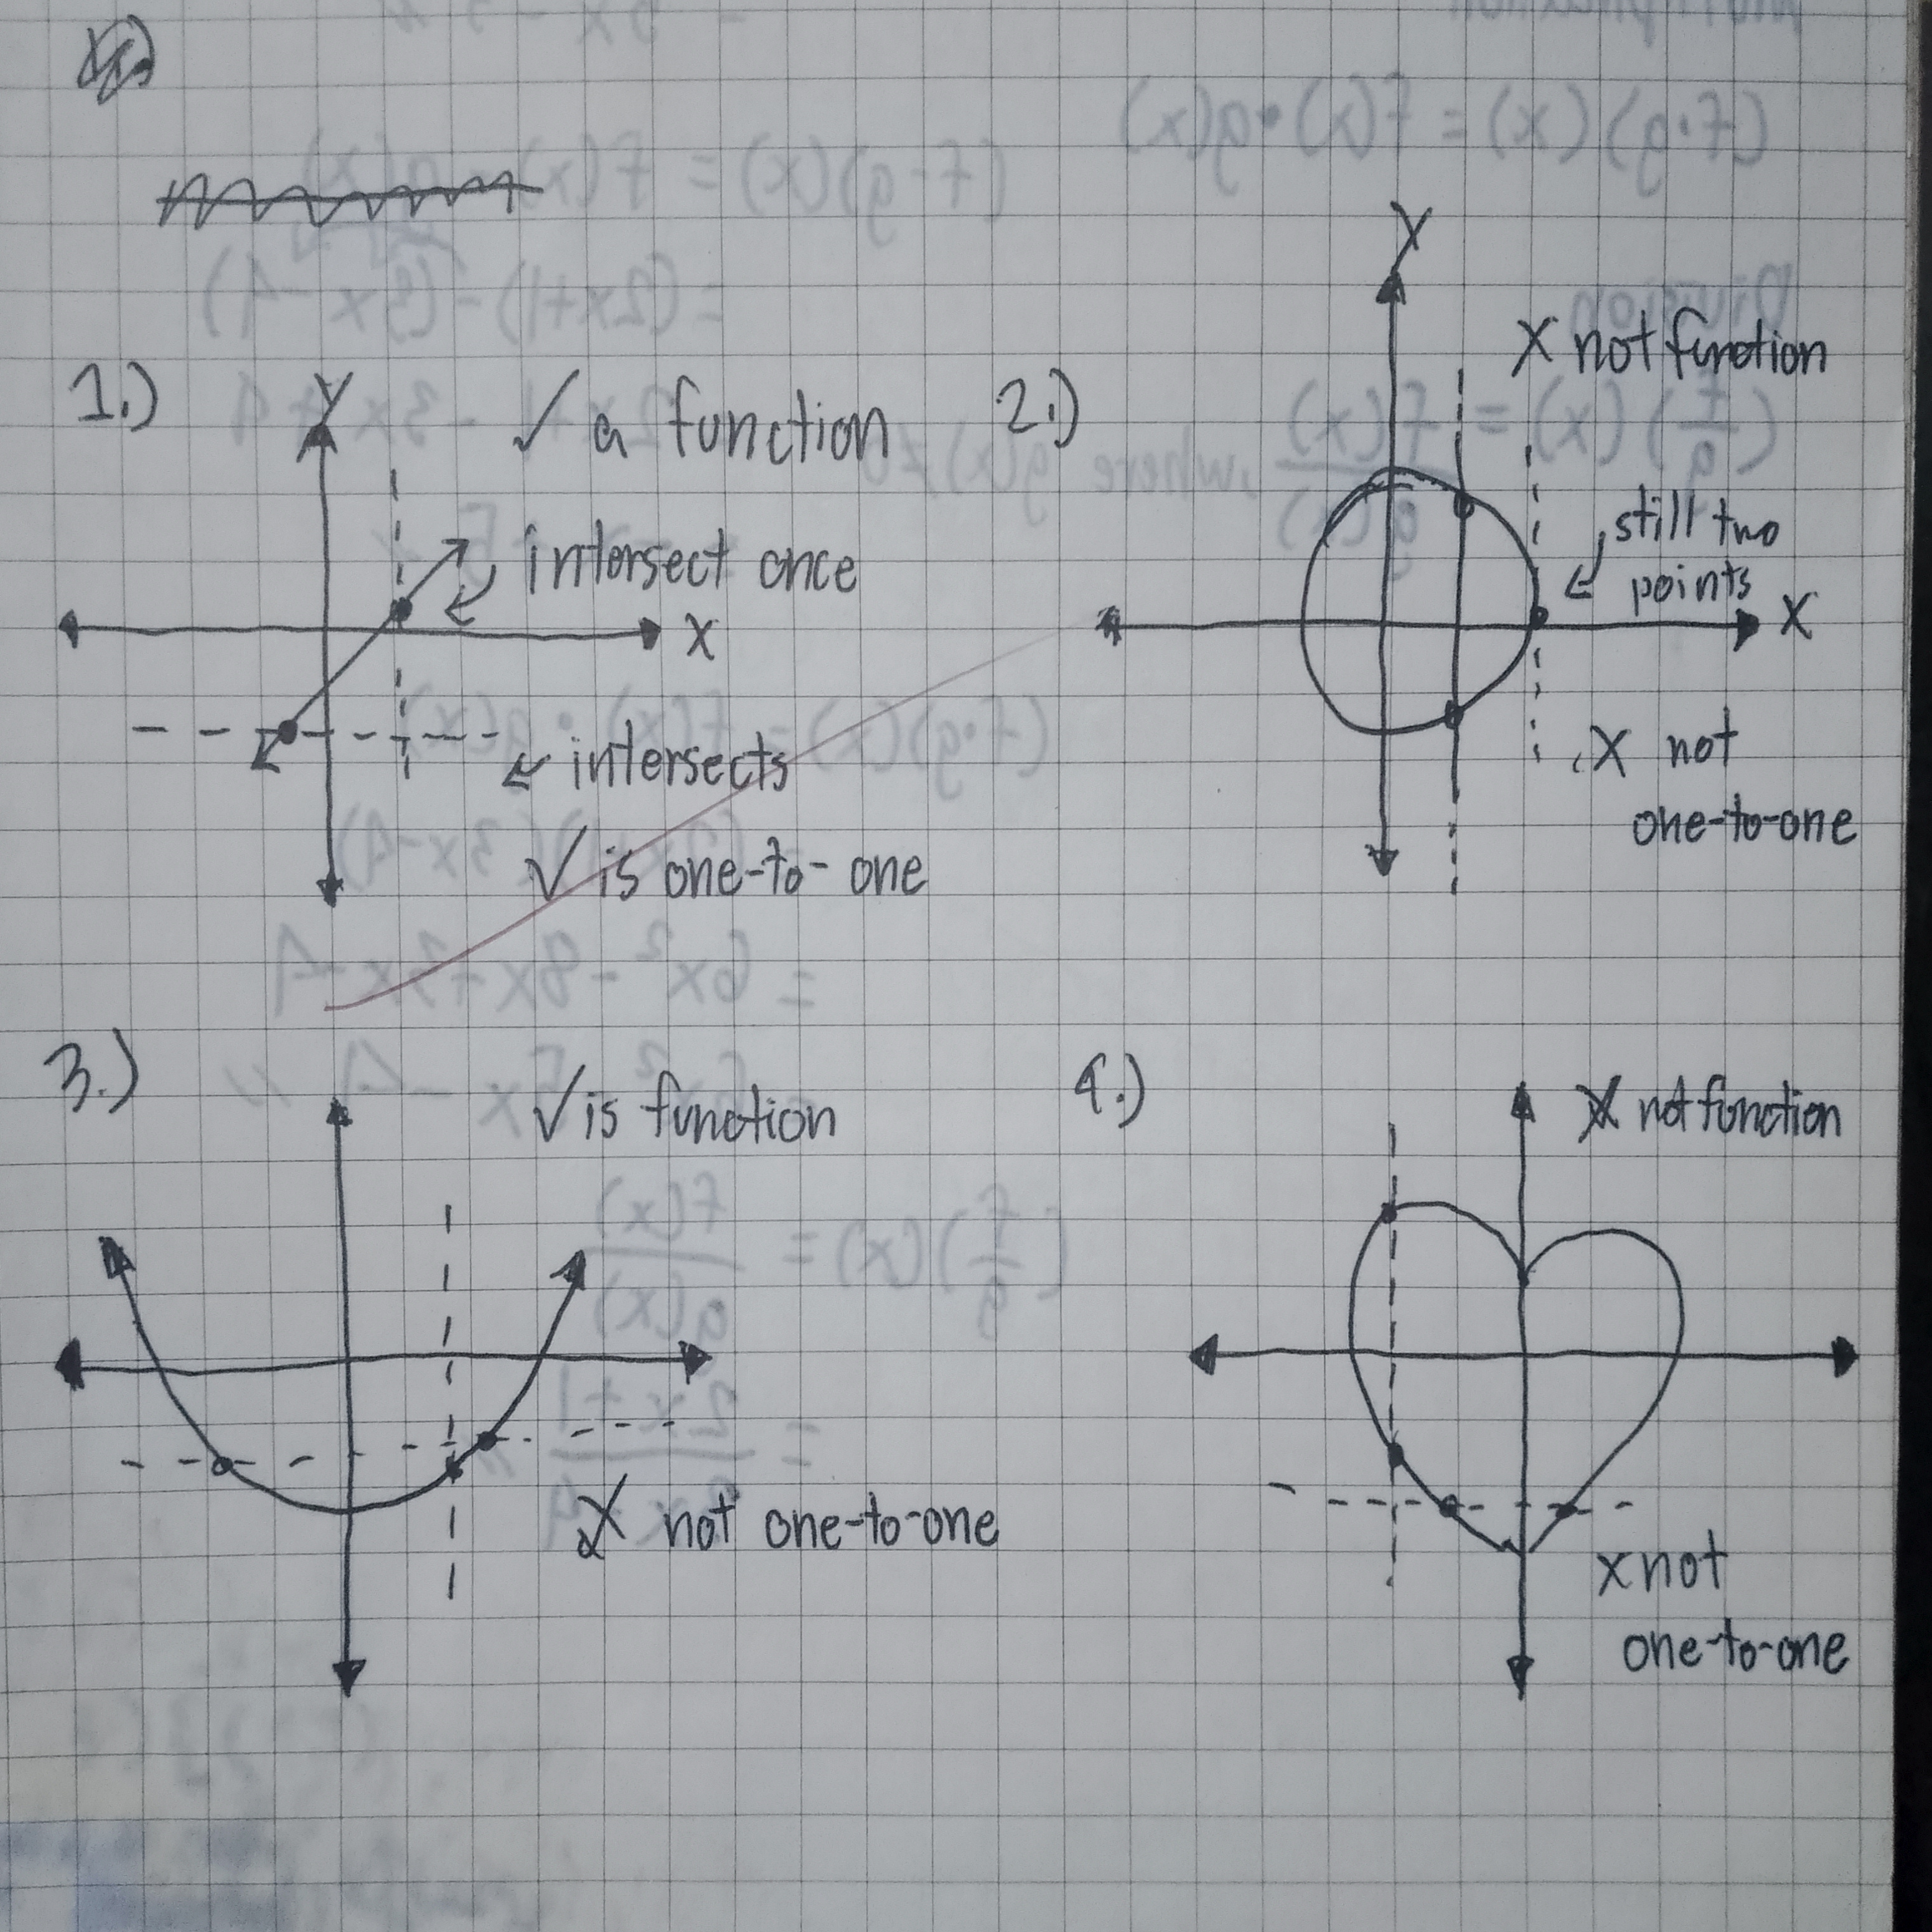 1.)
Y
√ a function
intersect once
X
intersects
√ is one-to-one
2.)
Y
X not function
still two
points
X
X not
one-to-one
3.)
√ is function
X not one-to-one
4.)
X not function
x not
one-to-one